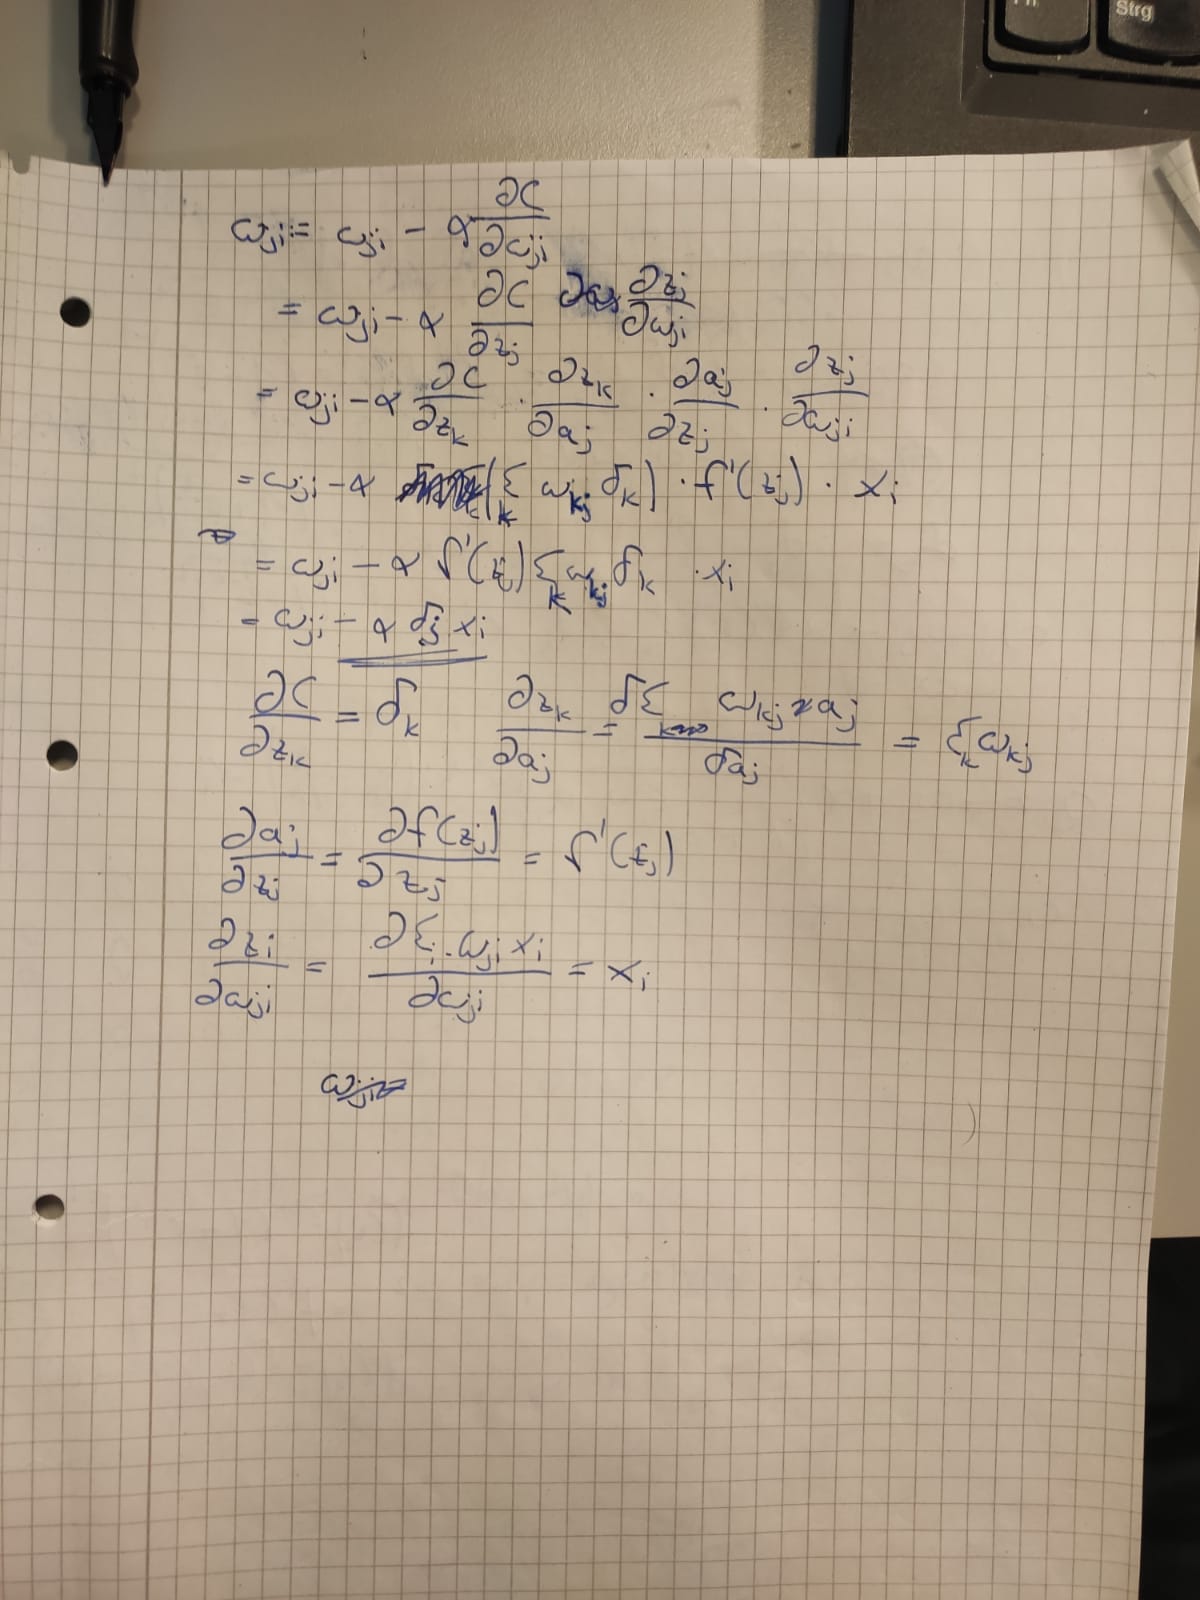 Strg
ω_ji = ω_ji - α ∂C/∂ω_ji
= ω_ji - α ∂C/∂z_j ∂z_j/∂ω_ji
= ω_ji - α ∂C/∂z_k · ∂z_k/∂a_j · ∂a_j/∂z_j · ∂z_j/∂ω_ji
= ω_ji - α (Σ_k ω_kj δ_k) · f'(z_j) · x_i
= ω_ji - α f'(z_j) Σ_k ω_kj δ_k · x_i
= ω_ji - α δ_j x_i
∂C/∂z_k = δ_k ∂z_k/∂a_j = δΣ_k ω_kj * a_j/δa_j = Σ_k ω_kj
∂a_j/∂z_j = ∂f(z_j)/∂z_j = f'(z_j)
∂z_i/∂ω_ji = ∂Σ_i · ω_ji x_i/∂ω_ji = x_i
ω_ji =